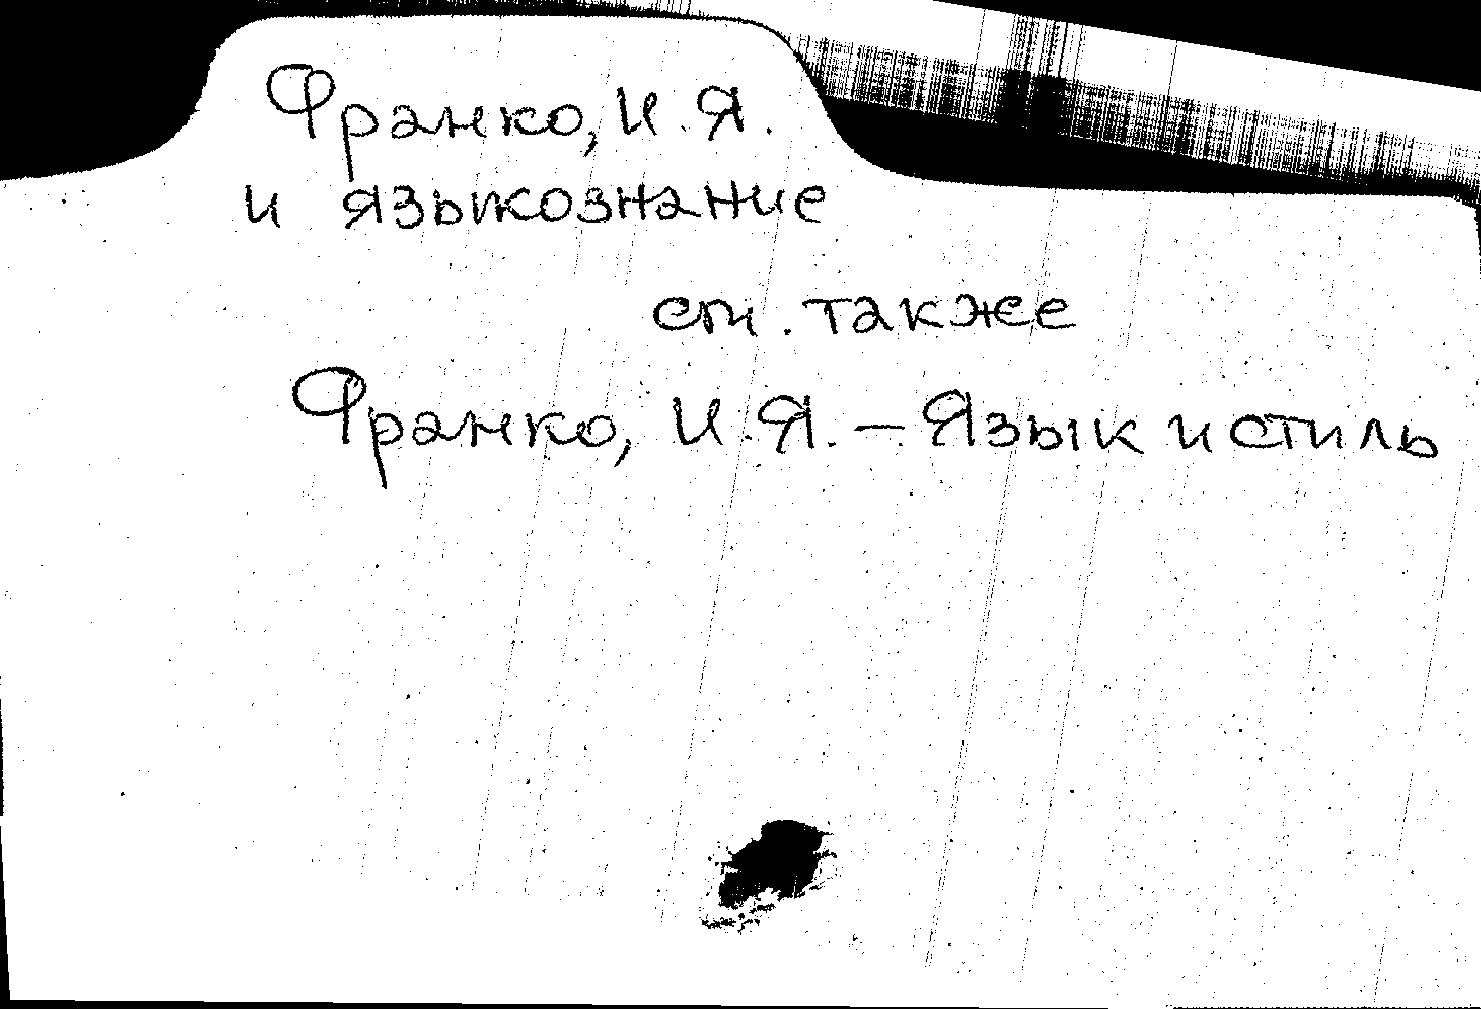 Франко, И. Я.
и языкознание
см. также
Франко, И. Я. — Язык и стиль